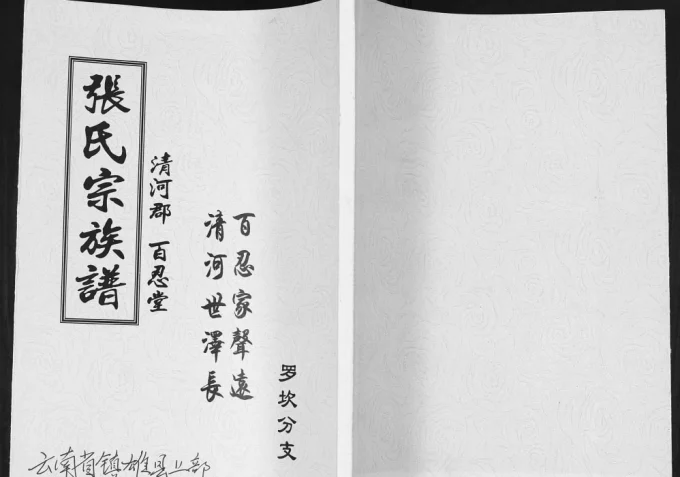 張氏宗族譜
清河郡 百忍堂
百忍家聲遠
清河世澤長
罗坎分支
云南省镇雄县